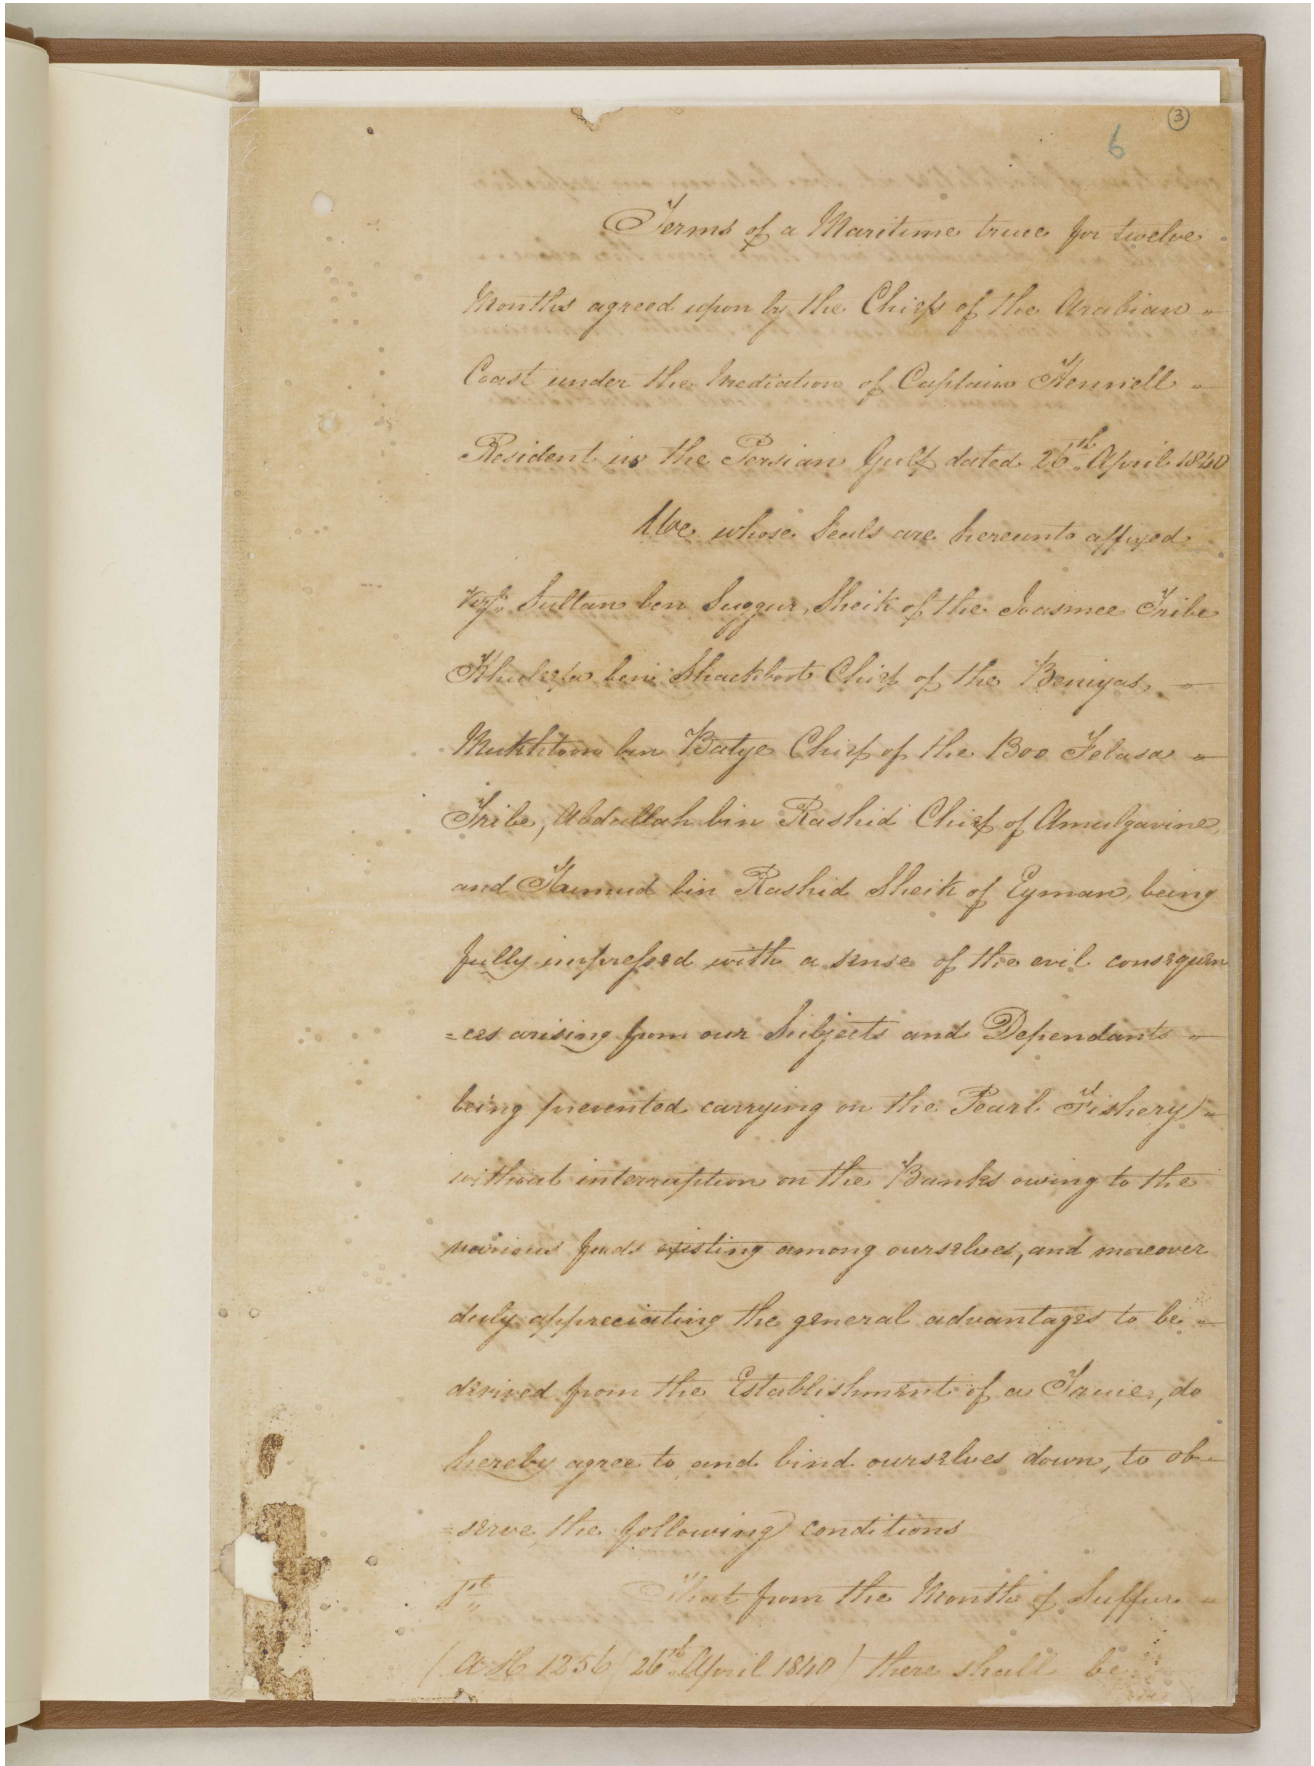 3
6
Terms of a Maritime truce for twelve
Months agreed upon by the Chiefs of the Arabian
Coast under the Mediation of Captain Hennell
Resident in the Persian Gulf dated 26th April 1840
We whose Seals are hereunto affixed
vizt. Sultan ben Suggur, Sheik of the Joasmee Tribe
Khuleefa bin Shackboot Chief of the Beniyas,
Mukhtoom bin Batye Chief of the Boo Felasa
Tribe, Abdullah bin Rashid Chief of Amulgavine,
and Humud bin Rashid Sheik of Eyman, being
fully impressed with a sense of the evil consequen
=ces arising from our Subjects and Dependants
being prevented carrying on the Pearl Fishery
without interruption on the Banks owing to the
various feuds existing among ourselves, and moreover
duly appreciating the general advantages to be
derived from the Establishment of a Truce, do
hereby agree to and bind ourselves down, to ob-
=serve the following conditions
1st That from the Month of Suffur
(AH 1256 / 26th April 1840) there shall be